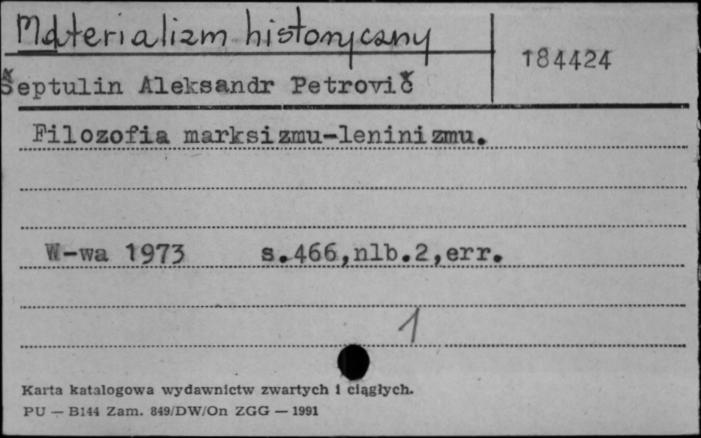 Materializm historyczny
184424
Šeptulin Aleksandr Petrovič
Filozofia marksizmu-leninizmu.
W-wa 1973 s.466,nlb.2,err.
1
Karta katalogowa wydawnictw zwartych i ciągłych.
PU — B144 Zam. 849/DW/On ZGG — 1991